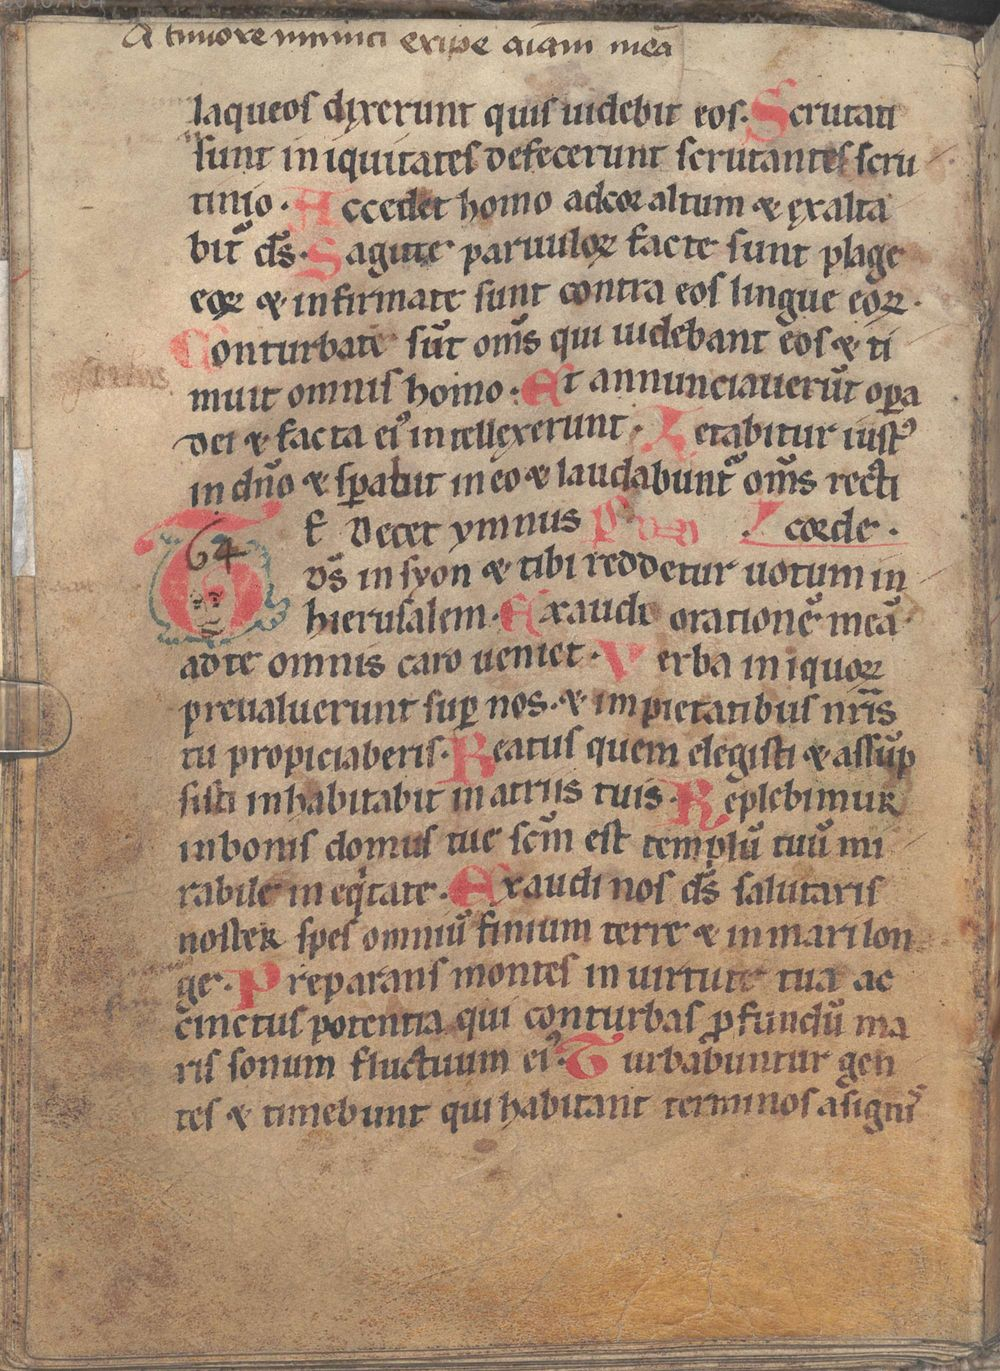 A timore inimici eripe aīam meā
laqueos dixerunt quis uidebit eos. Scrutati
sunt iniquitates defecerunt scrutantes scru
tinio. Accedet homo adcor altum & exalta
bit᷑ ds̄. Sagitte paruuloꝝ facte sunt plage
eoꝝ & infirmate sunt contra eos lingue eoꝝ.
Conturbati sūt om̄s qui uidebant eos & ti
muit omnis homo. Et annunciauerūt oꝑa
dei & facta eiꝰ intellexerunt. Letabitur iustꝰ
in dn̄o & sꝑabit in eo & laudabunt᷑ om̄s recti
64
E Decet ymnus corde.
ds̄ in syon & tibi reddetur uotum in
hierusalem. Exaudi orationē meā
ad te omnis caro ueniet. Verba iniquoꝝ
preualuerunt suꝑ nos. & impietatibus nr̄is
tu propiciaberis. Beatus quem elegisti & assūp
sisti inhabitabit in atriis tuis. Replebimur
inbonis domus tue scm̄ est templū tuū mi
rabile in eqͥtate. Exaudi nos ds̄ salutaris
noster spes omniū finium terre & in mari lon
ge. Preparans montes in uirtute tua ac
cinctus potentia qui conturbas ꝓfundū ma
ris sonum fluctuum eiꝰ. Turbabuntur gen
tes & timebunt qui habitant terminos asignis